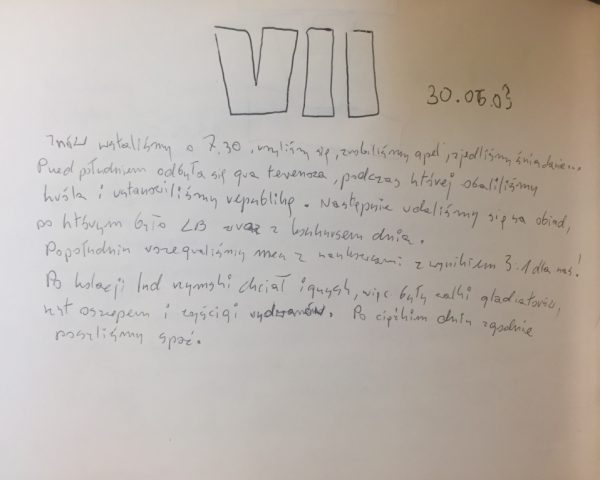 VII
30.06.03
Znów wstaliśmy o 7.30, umyliśmy się, zrobiliśmy apel, zjedliśmy śniadanie...
Przed południem odbyła się gra terenowa, podczas której obaliliśmy
króla i ustanowiliśmy republikę. Następnie udaliśmy się na obiad,
po którym było LB wraz z konkursem dnia.
Popołudniu rozegraliśmy mecz z 3:1 dla nas!
Po kolacji lud rzymski chciał igrzysk, więc były walki gladiatorów,
rzut oszczepem i wyścigi rydwanów. Po ciężkim dniu zgodnie
poszliśmy spać.